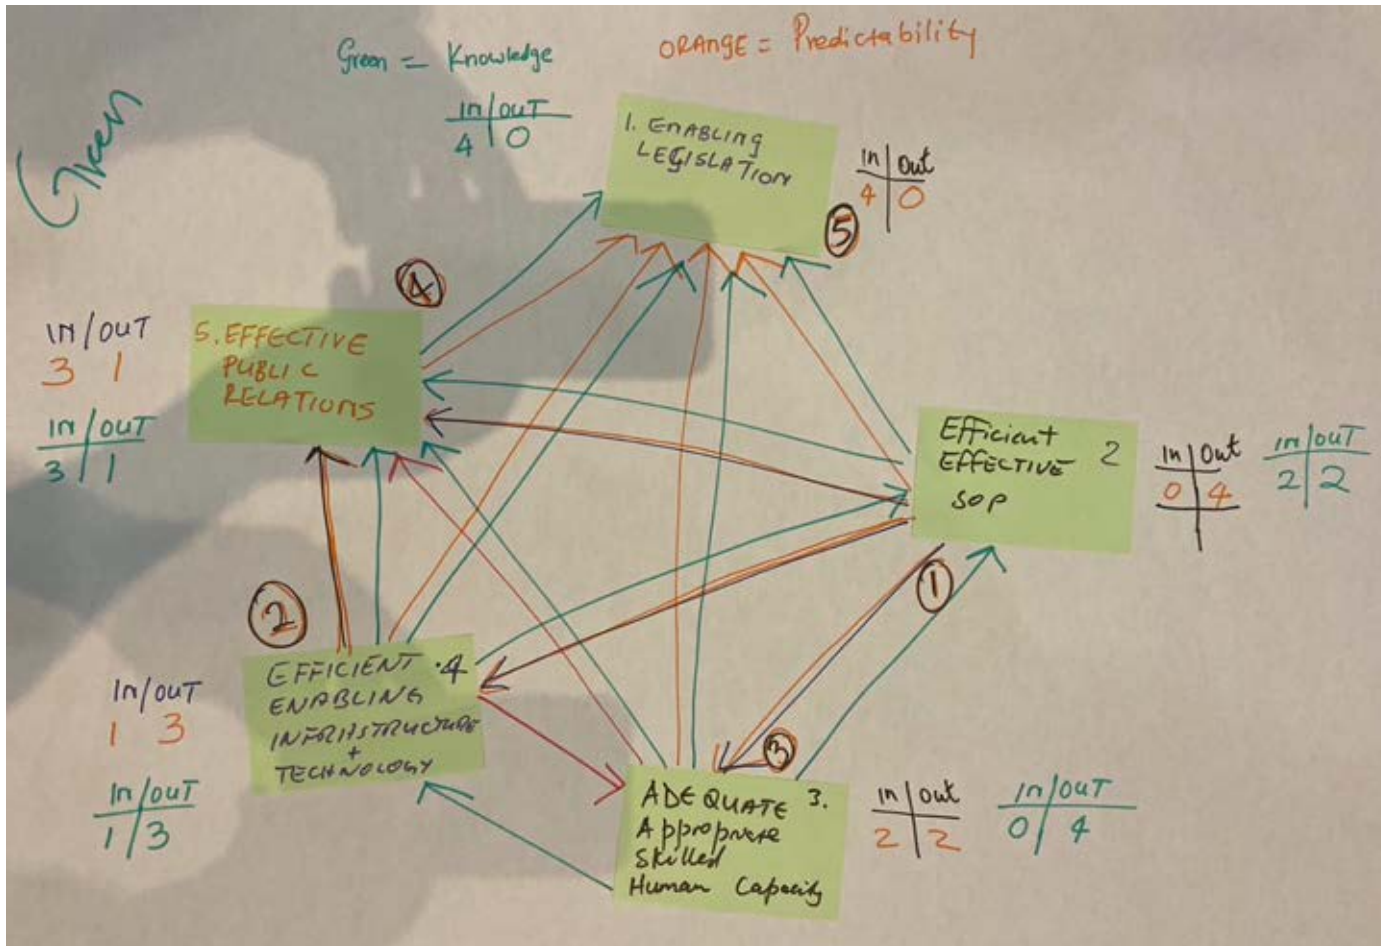 Green = Knowledge
ORANGE = Predictability
Green
In/OUT
4 | 0
1. ENABLING
LEGISLATION
In | Out
4 | 0
5
4
IN/OUT
3 1
In/OUT
3 | 1
5. EFFECTIVE
PUBLIC
RELATIONS
Efficient 2
EFFECTIVE
SOP
In | Out
0 | 4
in/OUT
2 | 2
1
2
In/OUT
1 3
In/OUT
1 | 3
EFFICIENT .4
ENABLING
INFRASTRUCTURE
+
TECHNOLOGY
3
ADEQUATE 3.
Appropriate
Skilled
Human Capacity
In | Out
2 | 2
In/OUT
0 | 4